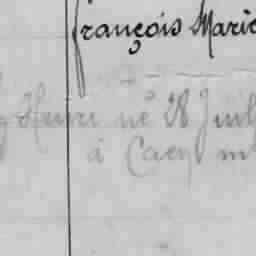 françois Marie
Henri né 28 Juil
à Caen m